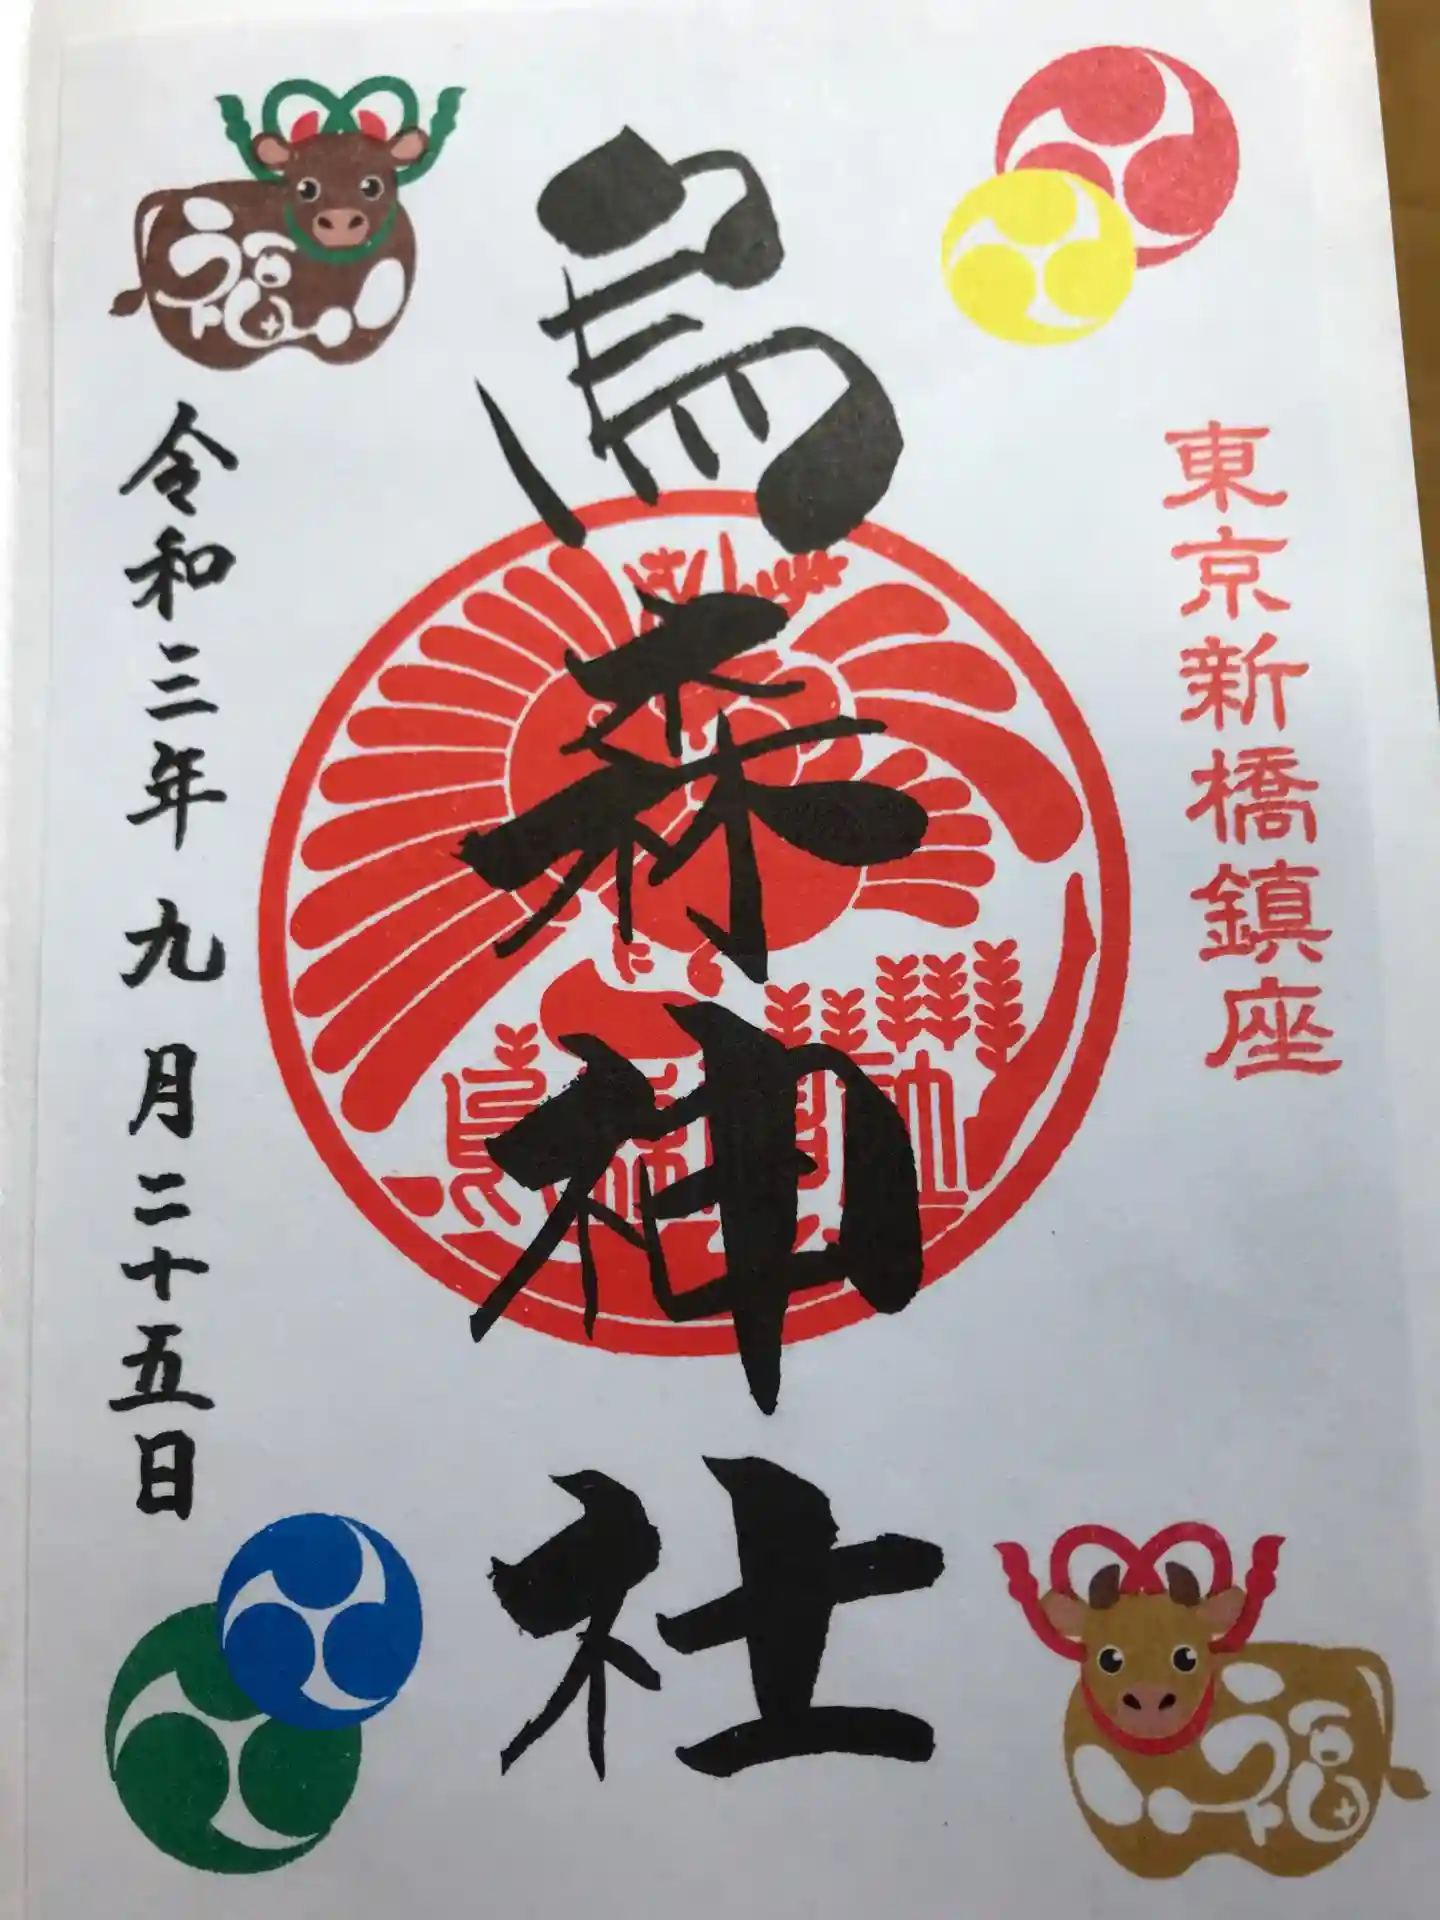 東京新橋鎮座
烏森神社
令和三年九月二十五日
福
福